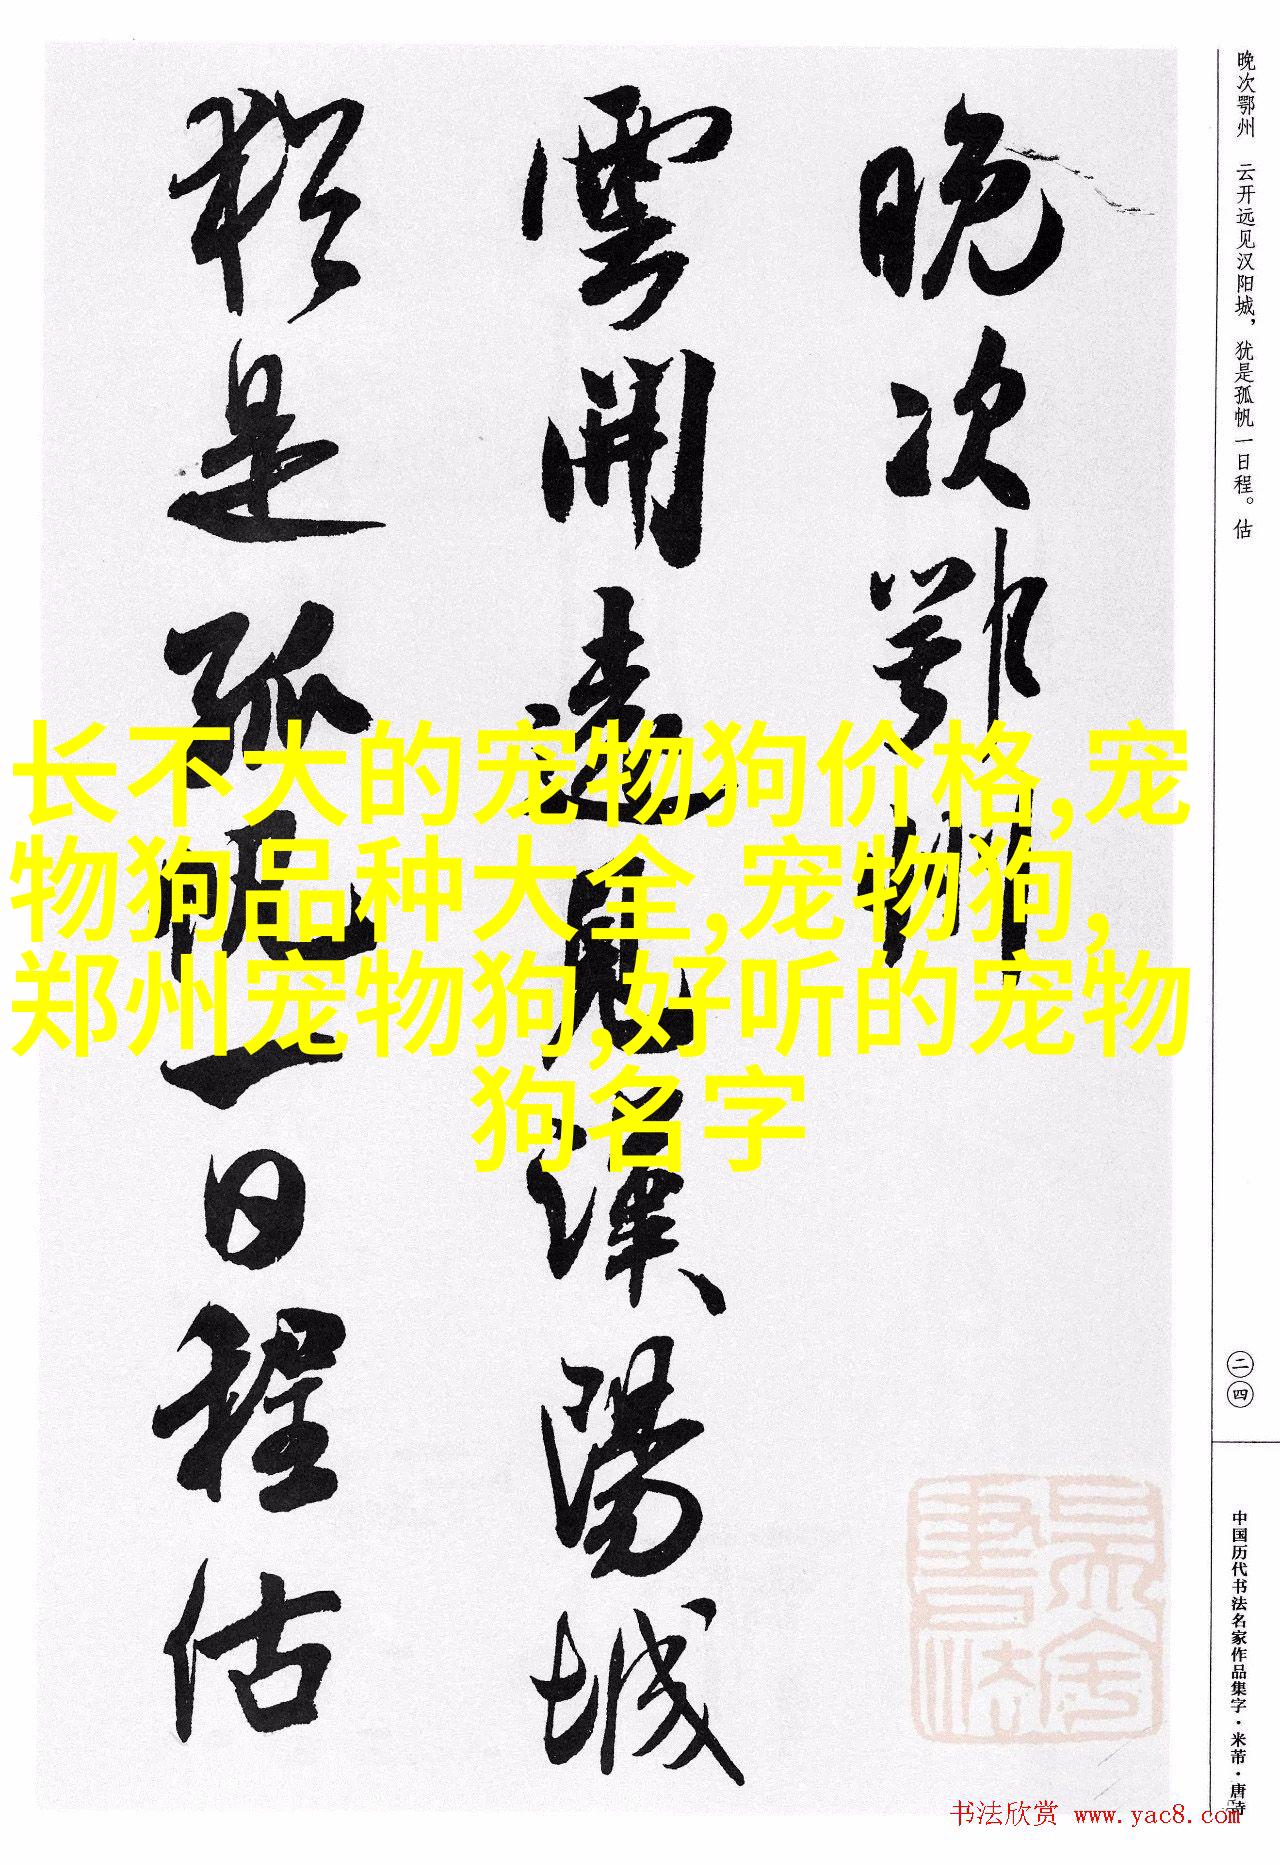 晚次鄂州　云开远见汉阳城，犹是孤帆一日程。估
晚次鄂州
雲開遠見漢陽城
猶是孤帆一日程估
长不大的宠物狗价格,宠
物狗品种大全,宠物狗,
郑州宠物狗,好听的宠物
狗名字
二四
中国历代书法名家作品集字·米芾·唐诗
书法欣赏 www.yac8.com